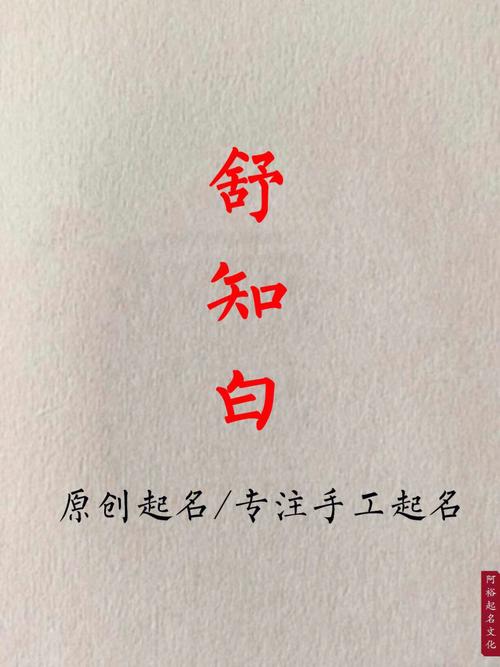 舒
知
白
原创起名/专注手工起名
阿裕起名文化